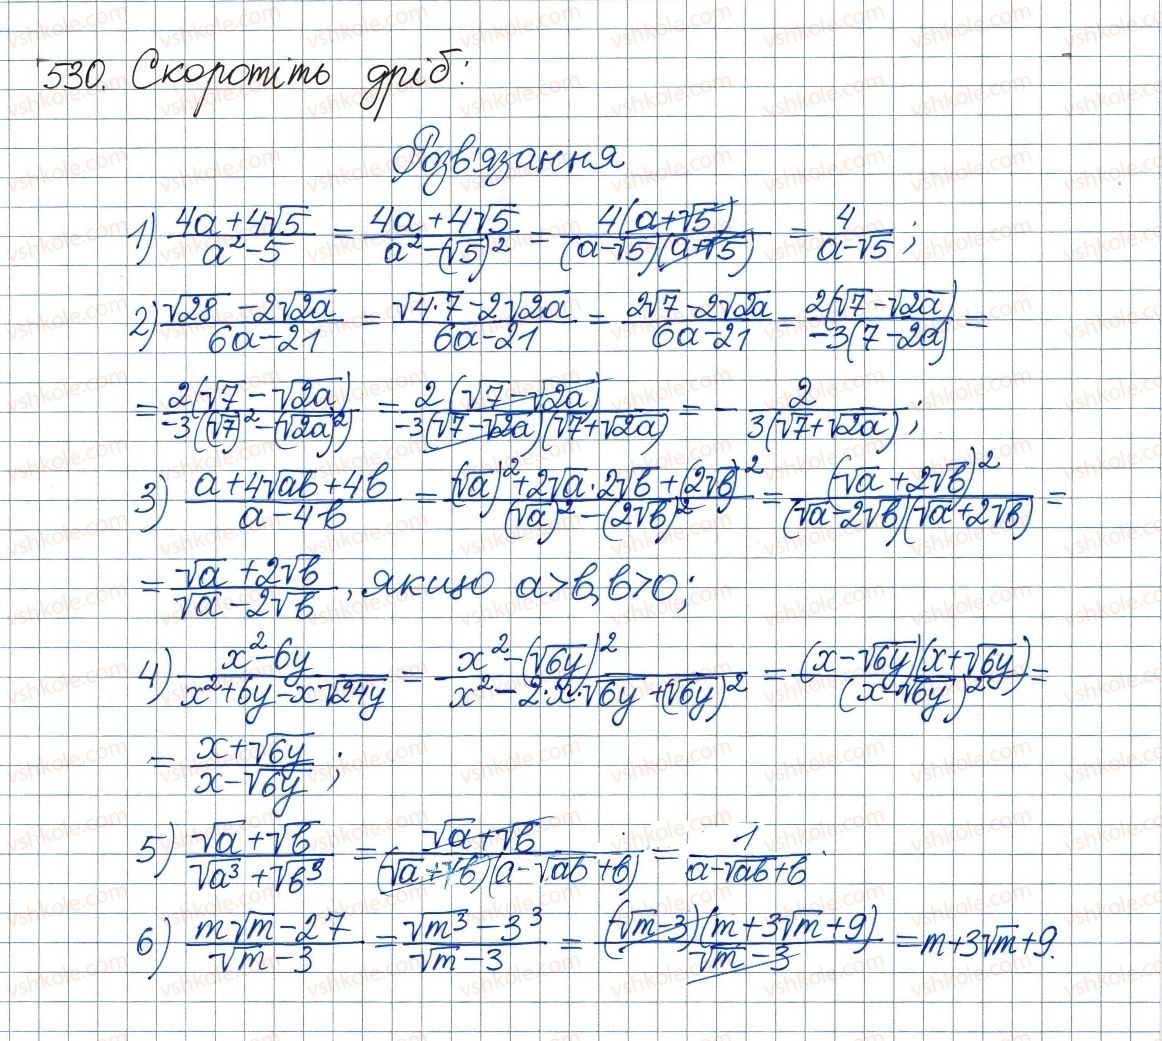 530. Скоротіть дріб:
Розв'язання
1) (4a+4√5)/(a²-5) = (4a+4√5)/(a²-(√5)²) = 4(a+√5)/((a-√5)(a+√5)) = 4/(a-√5);
2) (√28-2√2a)/(6a-21) = (√4·7-2√2a)/(6a-21) = (2√7-2√2a)/(6a-21) = 2(√7-√2a)/(-3(7-2a)) =
= 2(√7-√2a)/(-3((√7)²-(√2a)²)) = 2(√7-√2a)/(-3(√7-√2a)(√7+√2a)) = -2/(3(√7+√2a));
3) (a+4√ab+4b)/(a-4b) = ((√a)²+2√a·2√b+(2√b)²)/((√a)²-(2√b)²) = (√a+2√b)²/((√a-2√b)(√a+2√b)) =
= (√a+2√b)/(√a-2√b), якщо a>b, b>0;
4) (x²-6y)/(x²+6y-x√24y) = (x²-(√6y)²)/(x²-2·x·√6y+(√6y)²) = (x-√6y)(x+√6y)/(x-√6y)² =
= (x+√6y)/(x-√6y);
5) (√a+√b)/(√a³+√b³) = (√a+√b)/((√a+√b)(a-√ab+b)) = 1/(a-√ab+b).
6) (m√m-27)/(√m-3) = (√m³-3³)/(√m-3) = (√m-3)(m+3√m+9)/(√m-3) = m+3√m+9.